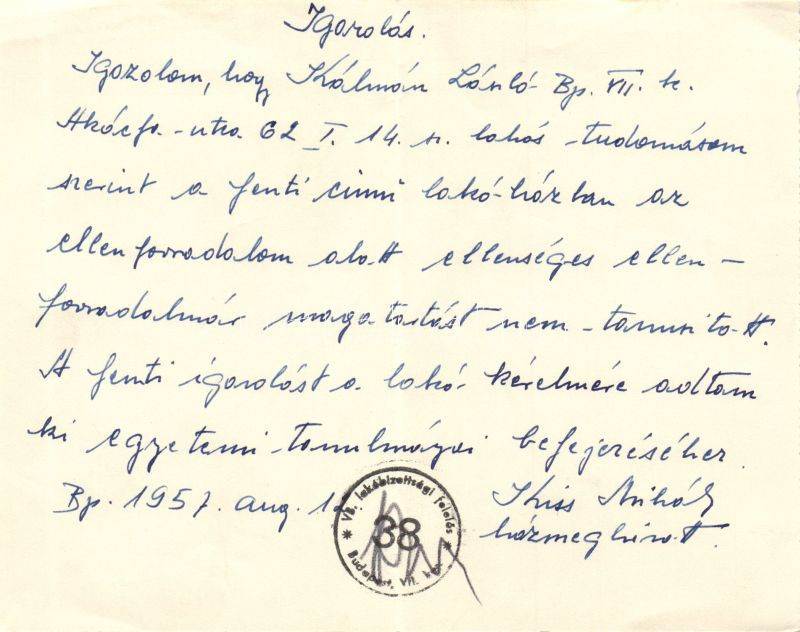 Igazolás.
Igazolom, hogy Kálmán László Bp. VII. k.
Akácfa-utca 62 I. 14. sz. lakós tudomásom
szerint a fenti cimü lakó-házban az
ellenforradalom alatt ellenséges ellen-
forradalmár magatartást nem tanusitott.
A fenti igazolást a lakó kérelmére adtam
ki egyetemi tanulmányai befejeséséhez.
Bp. 1957. aug. 1
Kiss Mihály
házmegbizott.
* VB. lakóbizottsági felelős *
38
Budapest, VII. ker.